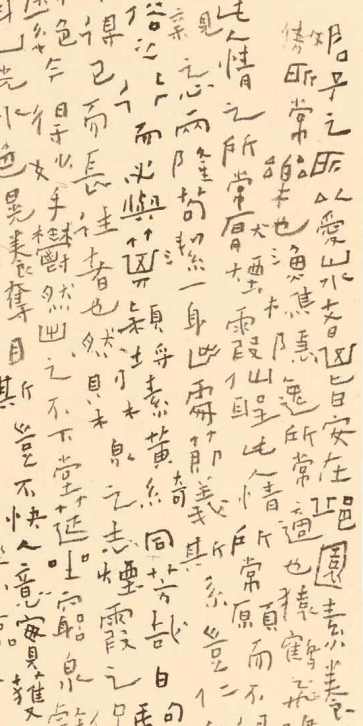 君子之所以愛山水者其旨安在邱園素養
所常樂也漁樵隱逸所常適也猿鶴飛
此人情之所常厭也煙霞仙聖此人情所常願而不
見 親之心兩隆苟潔一身出處節義斯系豈仁
俗之行而必與其潁埒素黃綺同芳哉白駒
得已而長往者也然則林泉之志煙霞之侶
今得妙手鬱然出之不下堂筵坐窮泉壑
山光水色晃漾奪目斯豈不快人意實獲